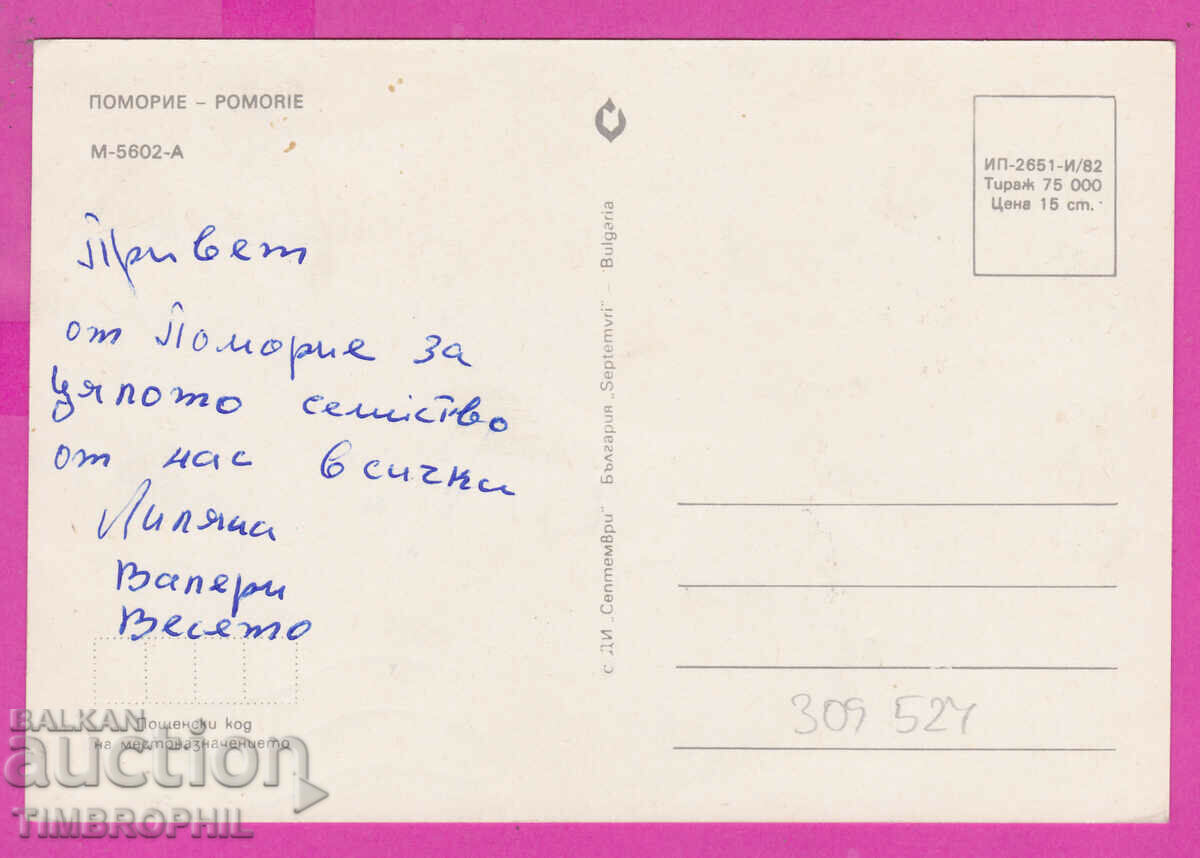 ПОМОРИЕ – POMORIE
М-5602-А
ИП-2651-И/82
Тираж 75 000
Цена 15 ст.
Привет
от Поморие за
цялото семейство
от нас всички
Лиляна
Валери
Весето
с ДИ „Септември" България „Septemvri" – Bulgaria
309 527
Пощенски код
на местоназначението
BALKAN
auction
TIMBROPHIL